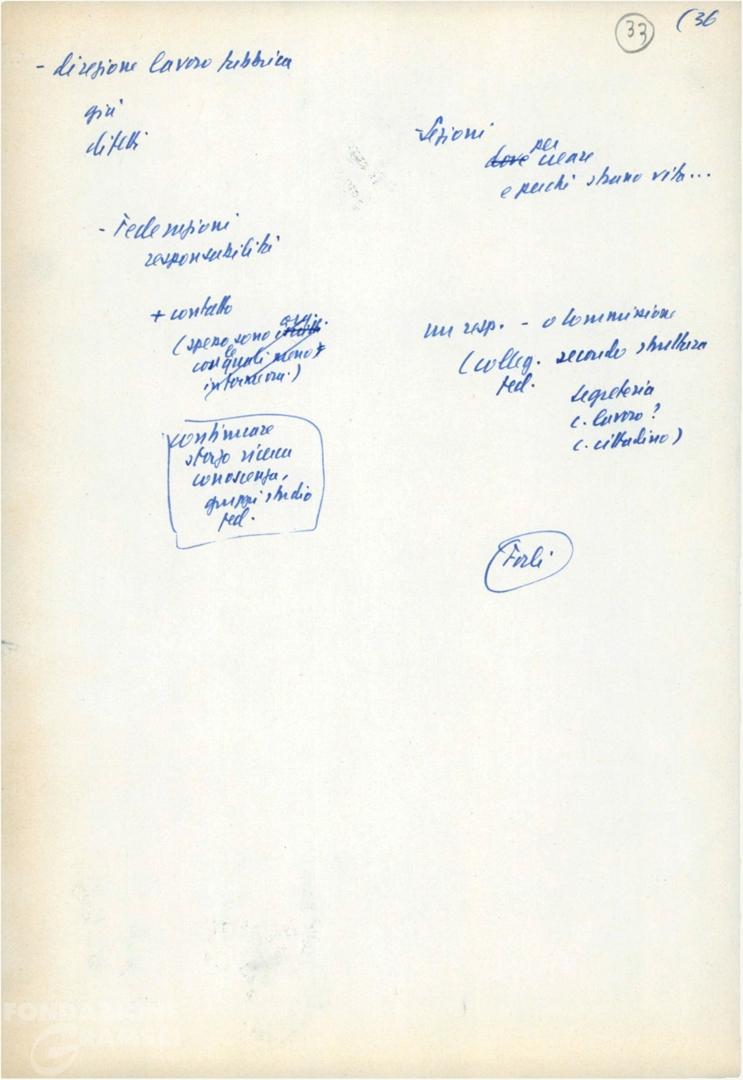 33
(36
- direzione lavoro fabbrica
già
difetti
- Sezioni
dove per creare
e perché strano vita...
- Federazioni
responsabilità
+ contatto
(spesso sono
con le quali meno
informaz.)
continuare
sforzo ricerca
conoscenza,
gruppi studio
fed.
un resp. - o Commissione
(colleg. secondo struttura
fed.
segreteria
c. lavoro?
c. cittadino)
Forlì
FONDAZIONE
GRAMSCI